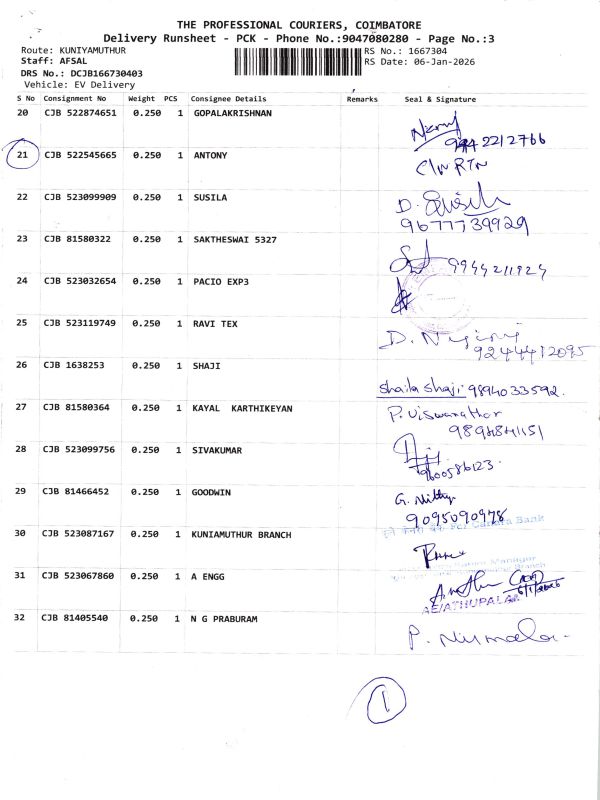 THE PROFESSIONAL COURIERS, COIMBATORE
Delivery Runsheet - PCK - Phone No.:9047080280 - Page No.:3
Route: KUNIYAMUTHUR
RS No.: 1667304
Staff: AFSAL
RS Date: 06-Jan-2026
DRS No.: DCJB166730403
Vehicle: EV Delivery
S No Consignment No Weight PCS Consignee Details Remarks Seal & Signature
20 CJB 522874651 0.250 1 GOPALAKRISHNAN
2212766
21 CJB 522545665 0.250 1 ANTONY
C/N RTN
22 CJB 523099909 0.250 1 SUSILA
D.
9677739929
23 CJB 81580322 0.250 1 SAKTHESWAI 5327
9944211924
24 CJB 523032654 0.250 1 PACIO EXP3
25 CJB 523119749 0.250 1 RAVI TEX
D.
9244412095
26 CJB 1638253 0.250 1 SHAJI
Shaila Shaji 9894033592.
27 CJB 81580364 0.250 1 KAYAL KARTHIKEYAN
P. Viswanathan
9894841151
28 CJB 523099756 0.250 1 SIVAKUMAR
9600586123.
29 CJB 81466452 0.250 1 GOODWIN
G.
9095090978
For Canara Bank
30 CJB 523087167 0.250 1 KUNIAMUTHUR BRANCH
Manager
Branch
31 CJB 523067860 0.250 1 A ENGG
6/1/2026
AE/ATHUPALAM
32 CJB 81405540 0.250 1 N G PRABURAM
P. Nirmala
1